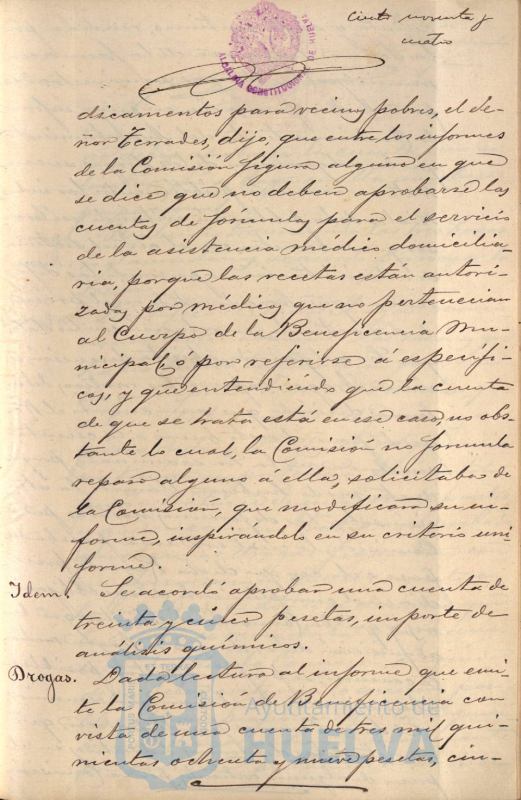 Ciento noventa y
cuatro
ALCALDIA CONSTITUCIONAL DE HUELVA
dicamentos para vecinos pobres, el Se-
ñor Terrades, dijo, que entre los informes
de la Comisión figura alguno en que
se dice que no deben aprobarse las
cuentas de fórmulas para el servicio
de la asistencia médico domicilia-
ria, porque las recetas están autori-
zadas por médicos que no pertenecían
al Cuerpo de la Beneficencia Mu-
nicipal, ó por referirse á específi-
cos, y que entendiendo que la cuenta
de que se trata está en ese caso, no obs-
tante lo cual, la Comisión no formula
reparo alguno á ella, solicitaba de
la Comisión, que modificara su in-
forme, inspirándolo en su criterio uni-
forme.
Idem. Se acordó aprobar una cuenta de
treinta y cinco pesetas, importe de
análisis químicos.
Drogas. Dada lectura al informe que emi-
te la Comisión de Beneficencia con
vista de una cuenta de tres mil qui-
nientas ochenta y nueve pesetas, cin-
Ayuntamiento de
HUELVA